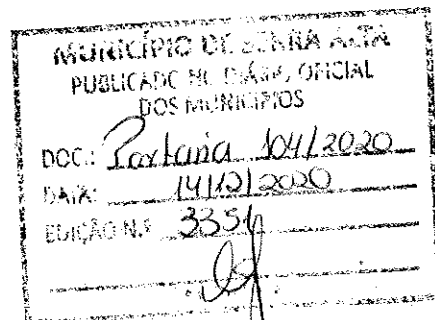 MUNICÍPIO DE SERRA ALTA
PUBLICADO NO DIÁRIO OFICIAL
DOS MUNICÍPIOS
DOC.: Portaria 104/2020
DATA: 14/12/2020
EDIÇÃO N.º 3351